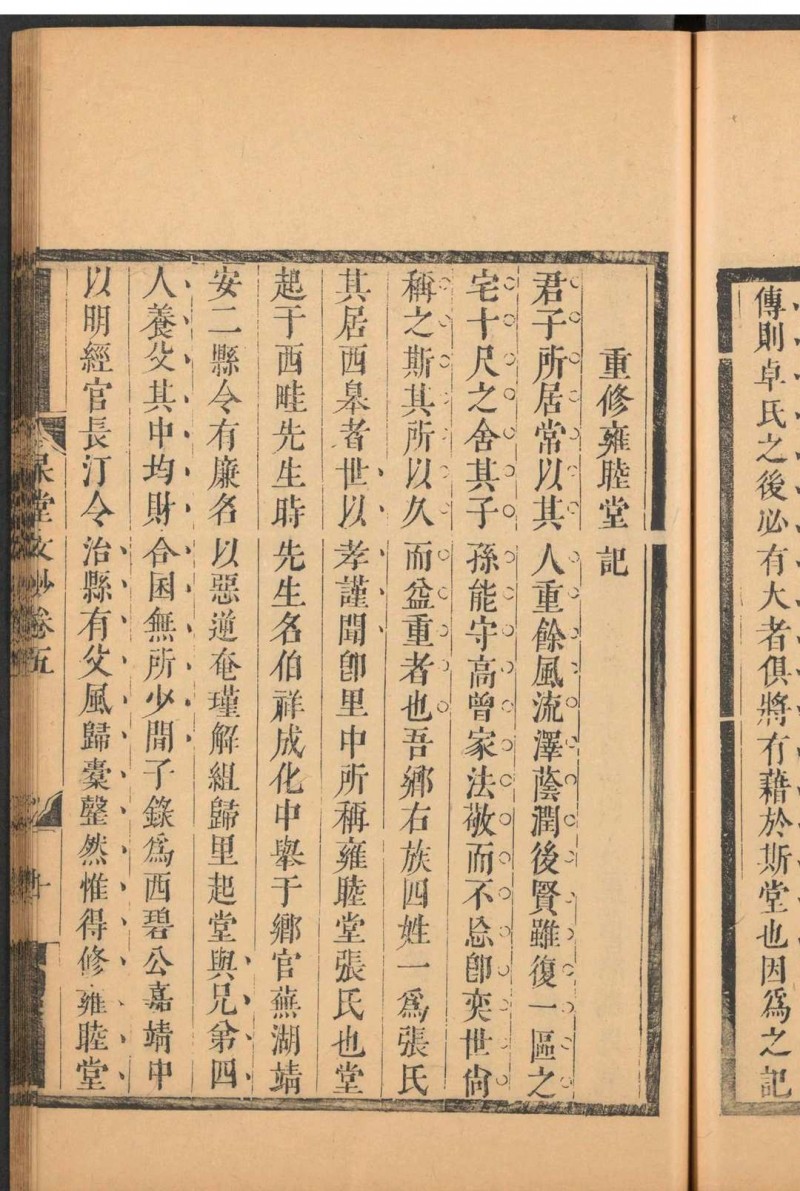 傳則卓氏之後必有大者俱將有藉於斯堂也因為之記
重修雍睦堂記
君子所居常以其人重餘風流澤蔭潤後賢雖復一區之
宅十尺之舍其子孫能守高曾家法敬而不怠卽奕世尙
稱之斯其所以久而益重者也吾鄉右族四姓一爲張氏
其居西皋者世以孝謹聞卽里中所稱雍睦堂張氏也堂
起于西畦先生時先生名伯祥成化中舉于鄉官蕪湖靖
安二縣令有廉名以惡逆奄瑾解組歸里起堂與兄弟四
人養父其中均財合囷無所少間子錄爲西碧公嘉靖中
以明經官長汀令治縣有父風歸橐罄然惟得修雍睦堂
杲堂文鈔卷五